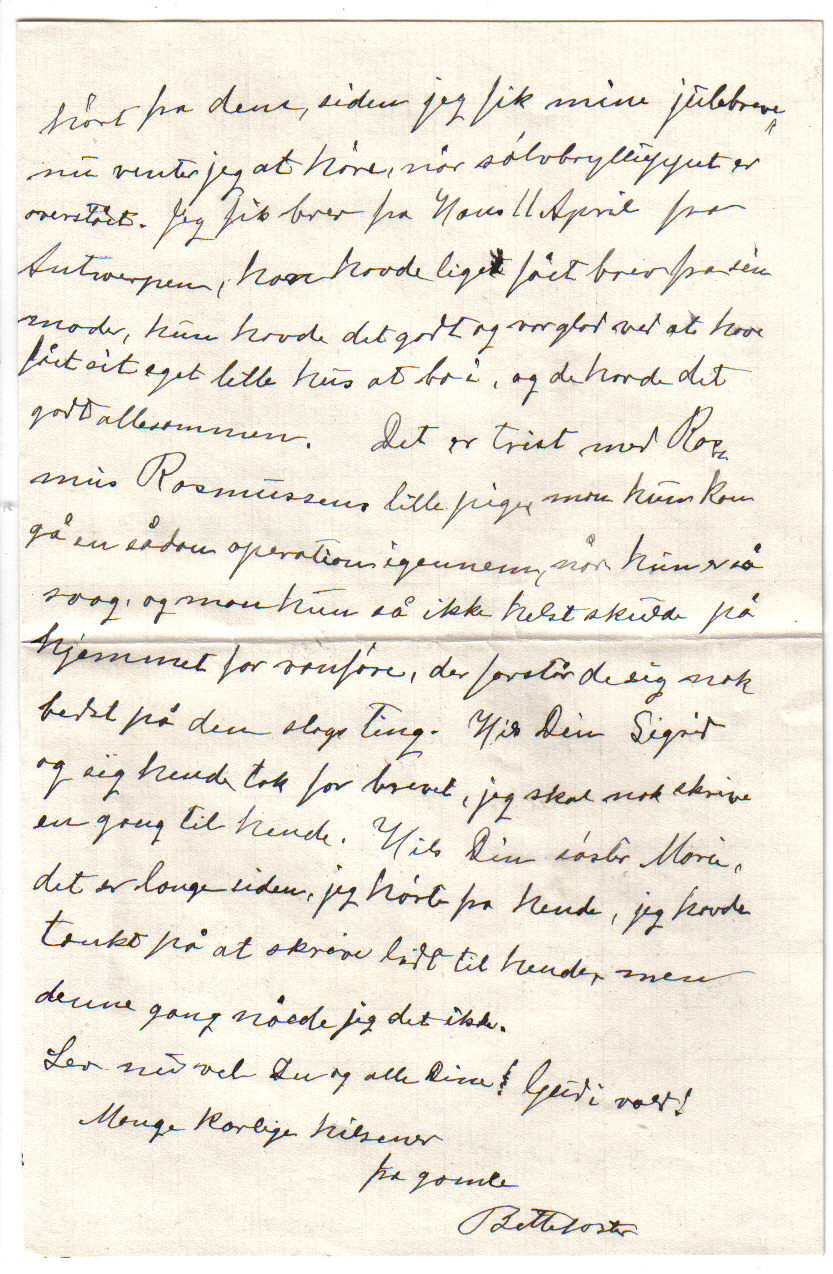 hört fra dem, siden jeg fik mine julebreve,
nu venter jeg at höre, når sölvbryllüppet er
overstået. Jeg fik brev fra Hans 11 April fra
Antwerpen, han havde liget fået brev fra sin
moder, hun havde det godt og var glad ved at have
fået sit eget lille hus at bo i, og de havde det
godt allesammen. Det er trist med Ras=
mus Rasmussens lille pige, mon hun kan
gå en sådan operation igennem, når hun er så
svag, og mon hun så ikke helst skulde på
hjemmet for vanföre, der forstår de sig nok
bedst på den slags ting. Hils Din Sigrid
og sig hende tak for brevet, jeg skal nok skrive
en gang til hende. Hils Din söster Marie,
det er længe siden, jeg hörte fra hende, jeg havde
tænkt på at skrive lidt til hende, men
denne gang nåede jeg det ikke.
Lev nu vel Du og alle Dine! Gud i vold!
Mange kærlige hilsener
fra gamle
Bettefaster